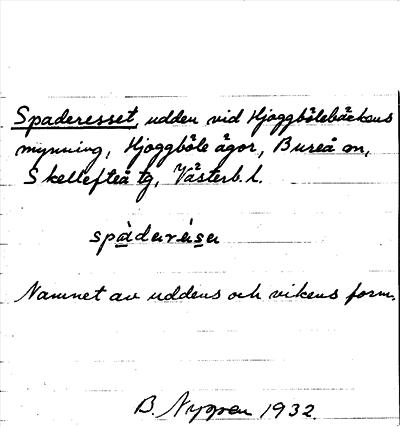 Spaderesset, udden vid Hjoggbölebäckens
mynning, Hjoggböle ägor, Bureå sn,
Skellefteå tg, Västerb. l.
spàderésen
Namnet av uddens och vikens form.
B. Nyman 1932.